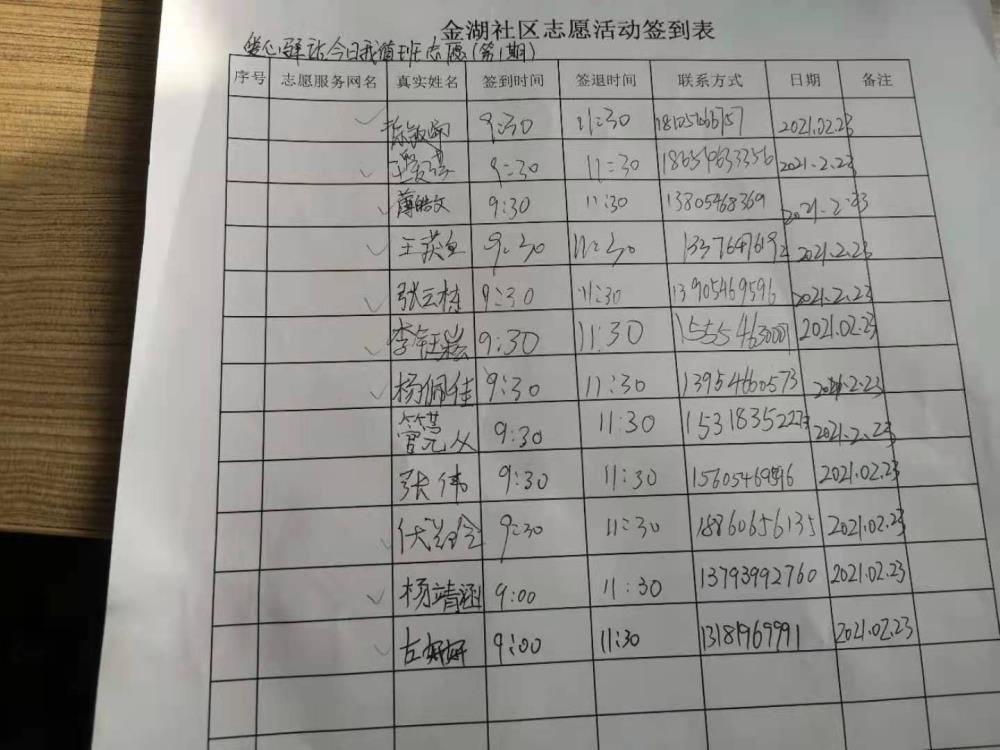 金湖社区志愿活动签到表
爱心驿站今日我值班志愿(第1期)
序号 志愿服务网名 真实姓名 签到时间 签退时间 联系方式 日期 备注
9:30 11:30 2021.02.23
9:30 11:30 18659633356 2021.2.23
薄皓文 9:30 11:30 13805468369 2021.2.23
王获鱼 9:30 11:30 2021.2.23
张云栋 9:30 11:30 13905469596 2021.2.23
9:30 11:30 2021.02.23
杨佩佳 9:30 11:30 13954660573 2021.2.23
9:30 11:30 15318352273 2021.2.23
张伟 9:30 11:30 2021.02.23
9:30 11:30 18860656135 2021.02.23
杨靖涵 9:00 11:30 13793992760 2021.02.23
左妍妍 9:00 11:30 13181969991 2021.02.23